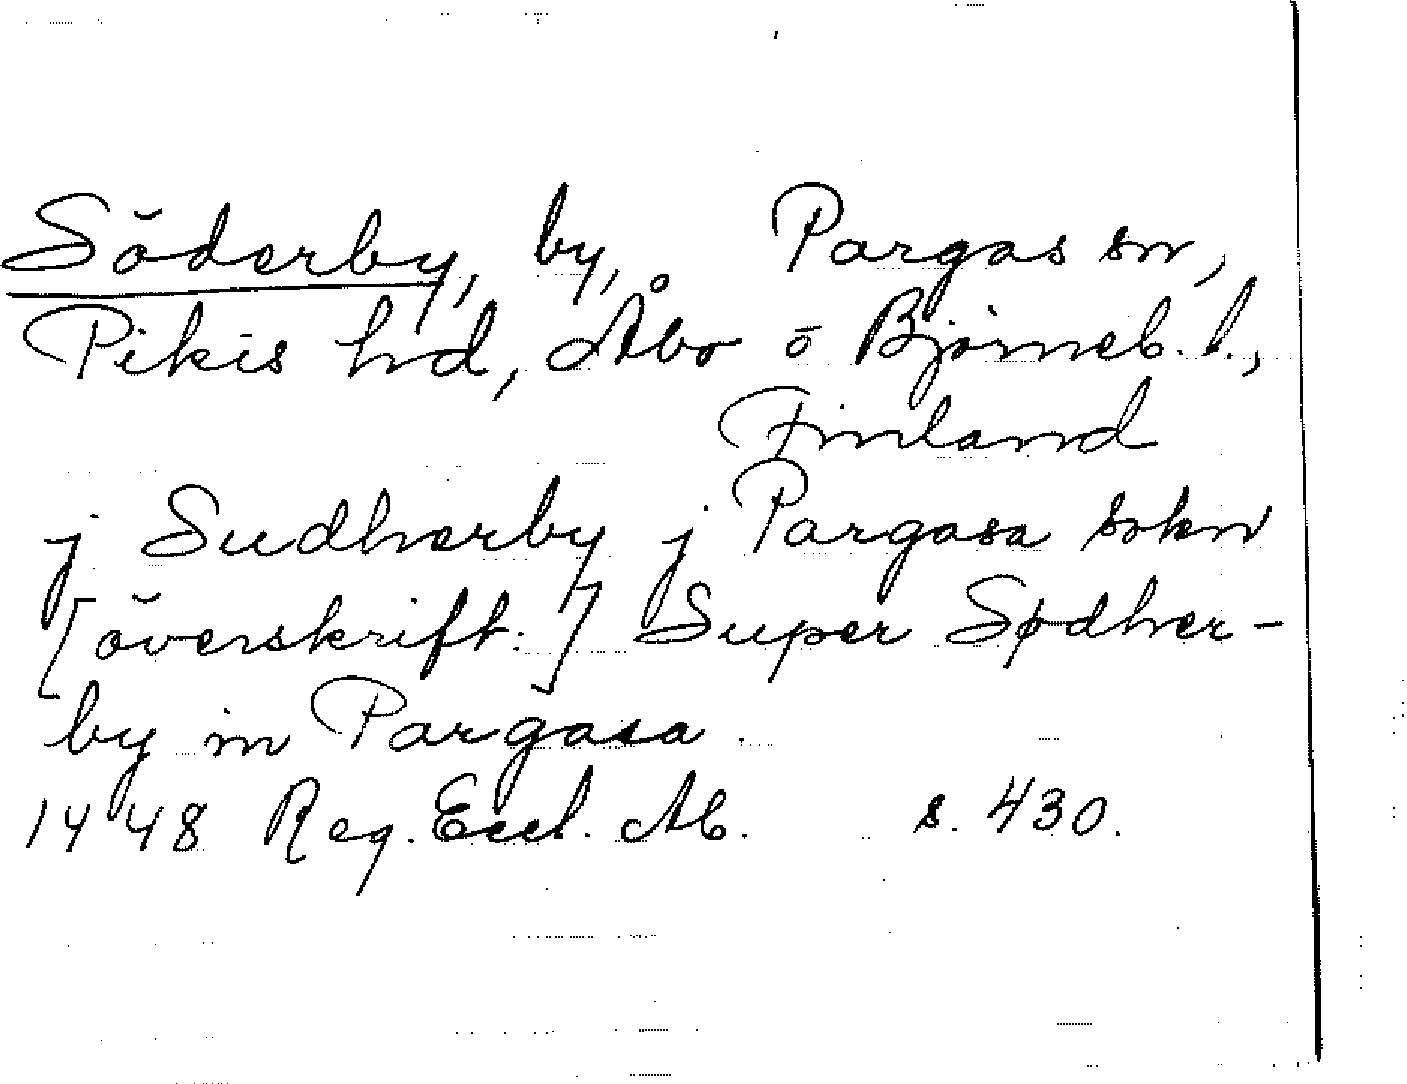 Söderby, by, Pargas sn,
Pikis hd, Åbo o Björneb. l.,
Finland
j Sudherby j Pargasa sokn
[överskift.] Super Sødher-
by in Pargasa.
1448 Reg. Eccl. Ab. s. 430.